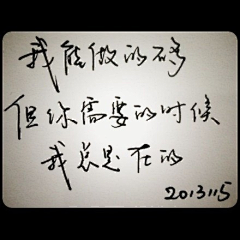 我能做的不多
但你需要的时候
我总是在的
2013115